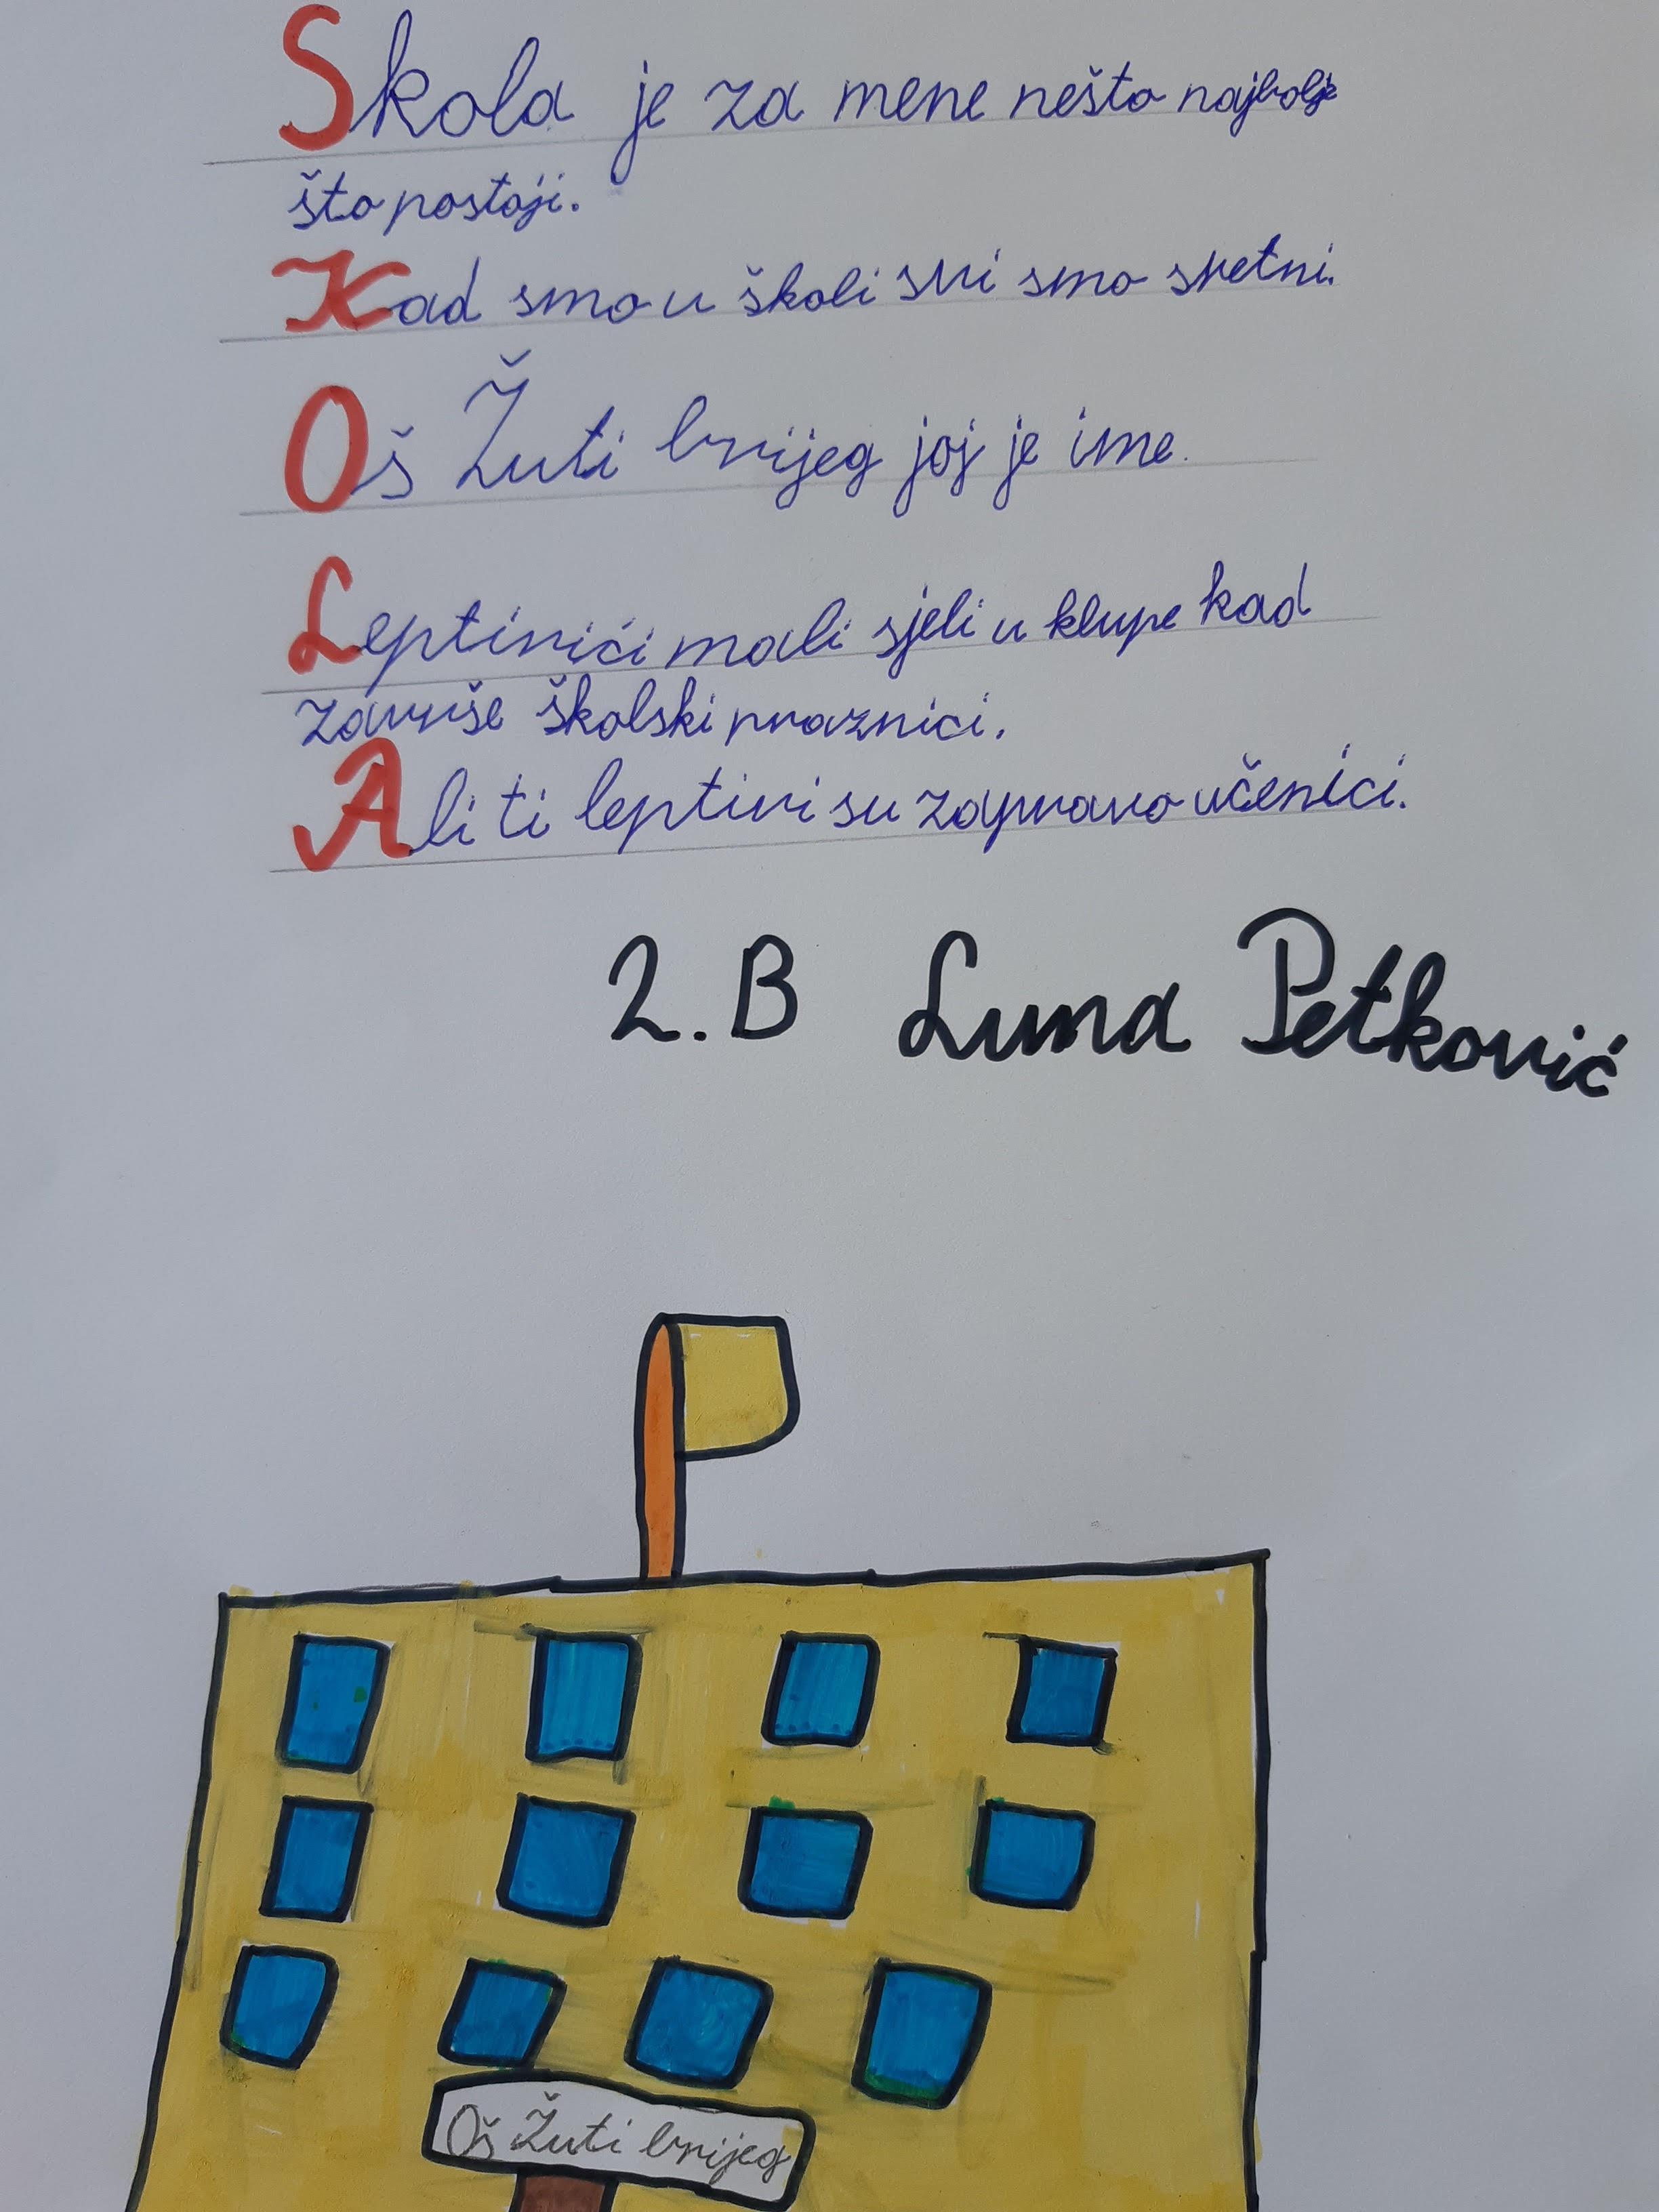 Skola je za mene nešto najbolje
što postoji.
Kad smo u školi svi smo sretni.
Oš Žuti brijeg joj je ime.
Leptirići mali sjeli u klupe kad
završe školski praznici.
Ali ti leptiri su zapravo učenici.
2.B Luna Petković
Oš Žuti brijeg